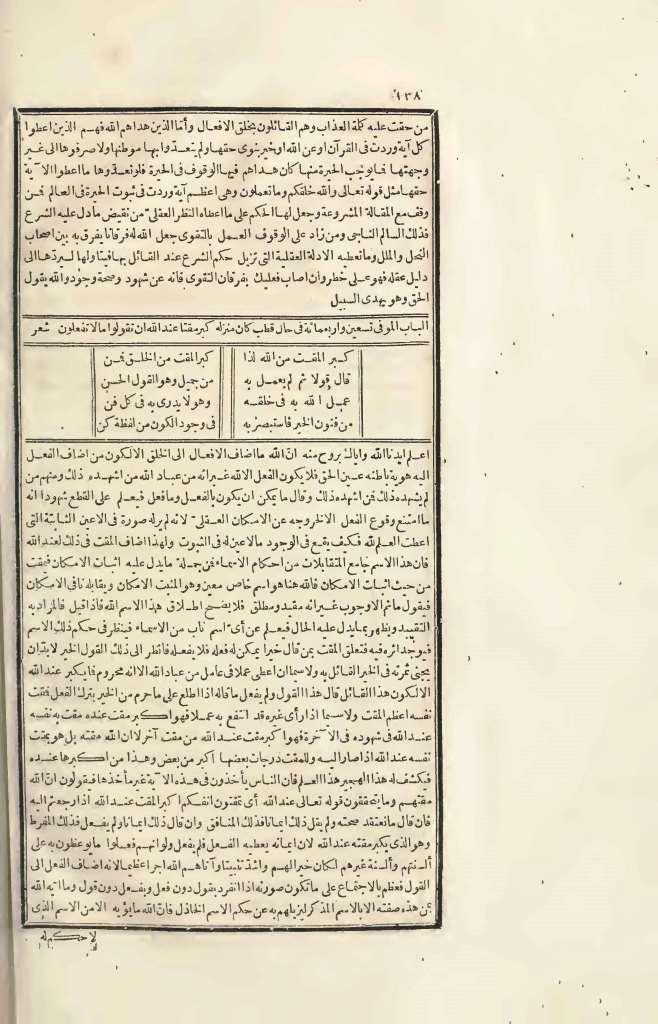 ١٣٨
من حقت عليه كلمة العذاب وهم القائلون بخلق الافعال وأما الذين هداهم الله فهم الذين اعطوا
كل آية وردت فى القرآن اوعن الله اوخبر نبوى حقها ولم يتعدوا بها موطنها ولا صرفوها الى غير
وجهتها فما يوجب الحيرة منها كان هداهم فيها الوقوف فى الحيرة فلو تعدوها ما اعطوا الآية
حقها مثل قوله تعالى والله خلقكم وما تعملون وهى اعظم آية وردت فى ثبوت الحيرة فى العالم فمن
وقف مع المقالة المشروعة وجعل لها الحكم على ما اعطاه النظر العقلىّ من نقيض ما دل عليه الشرع
فذلك السالم الناجى ومن زاد على الوقوف العمل بالتقوى جعل الله له فرقانا يفرق به بين اصحاب
النحل والملل وما تعطيه الادلة العقلية التى تزيل حكم الشرع عند القائل بها فيتأولها ليردها الى
دليل عقله فهو على خطر وان اصاب فعليك بفرقان التقوى فانه عن شهود وصحة وجود والله يقول
الحق وهو يهدى السبيل
الباب الموفى تسعين واربعمائة فى حال قطب كان منزله كبر مقتا عند الله ان تقولوا ما لا تفعلون شعر
كبر المقت من الله لذا كبر المقت من الخلق فمن
قال قولا ثم لم يعمل به من جميل وهو القول الحسن
عمل الله به فى خلقه وهو لا يدرى به فى كل فن
من فنون الخير فاستبصر به فى وجود الكون من لفظة كن
اعلم ايدنا الله واياك بروح منه ان الله ما اضاف الافعال الى الخلق الا لكون من اضاف الفعل
اليه هوية باطنه عين الحق فلا يكون الفعل الا لله غير انه من عباد الله من اشهده ذلك ومنهم من
لم يشهده ذلك فمن اشهده ذلك وقال ما يمكن ان يكون بالفعل وما فعل فيعلم على القطع شهودا انه
ما امتنع وقوع الفعل الا لخروجه عن الامكان العقلىّ لانه لم ير له صورة فى الاعين الثابتة التى
اعطت العلم لله فكيف يقع فى الوجود ما لا عين له فى الثبوت ولهذا اضاف المقت فى ذلك لعند الله
فان هذا الاسم جامع المتقابلات من احكام الاسماء فمن جملة ما يدل عليه اثبات الامكان فيمقت
من حيث اثبات الامكان فالله هنا هو اسم خاص معين وهو المثبت الامكان ويقابله نافى الامكان
فيقول ما ثم الا وجوب غير انه مقيد ومطلق فلا يصح اطلاق هذا الاسم الله فاذا قيل فالمراد به
التقييد ويظهر بما يدل عليه الحال فيعلم عن أىّ اسم ناب من الاسماء فينظر فى حكم ذلك الاسم
فيوجد اثره فيه فتعلق المقت بمن قال خيرا يمكن له فعله فلا يفعله فانظر الى ذلك القول الخير لا بد ان
يجنى ثمرته فى الخير القائل به ولا سيما ان اعطى عملا فى عامل من عباد الله الا انه محروم فما يكبر عند الله
الا لكون هذا القائل قال هذا القول ولم يفعل ما قاله اذا اطلع على ما حرم من الخير بترك الفعل فمقت
نفسه اعظم المقت ولا سيما اذا رأى غيره قد انتفع به عملا فهو اكبر مقت عنده مقت به نفسه
عند الله فى شهوده فى الآخرة فهو اكبر مقت عند الله من مقت آخر لا ان الله مقته بل هو يمقت
نفسه عند الله اذا صار اليه وللمقت درجات بعضها اكبر من بعض وهذا من اكبرها عنده
فيكشف له هذا الهجير هذا العلم فان الناس يأخذون فى هذه الآية غير مأخذها فيقولون ان الله
مقتهم وما يتحققون قوله تعالى عند الله أى تمقتون انفسكم اكبر المقت عند الله اذا رجعتم اليه
فان قال ما نعتقد صحته ولم يقل ذلك ايمانا فذلك المنافق وان قال ذلك ايمانا ولم يفعل فذلك المفرط
وهو الذى يكبر مقته عند الله لان ايمانه يعطيه الفعل فلم يفعل ولو انهم فعلوا ما يوعظون به على
ألسنتهم وألسنة غيرهم لكان خيرا لهم واشد تثبيتا وآتاهم الله اجرا عظيما لانه اضاف الفعل الى
القول فعظم بالاجتماع على ما تكون صورته اذا انفرد بقول دون فعل وبفعل دون قول وما ايه الله
بمن هذه صفته الا بالاسم المذكر ليزيلهم به عن حكم الاسم الخاذل فان الله ما يؤيه الا من الاسم الذى
لا حكم له